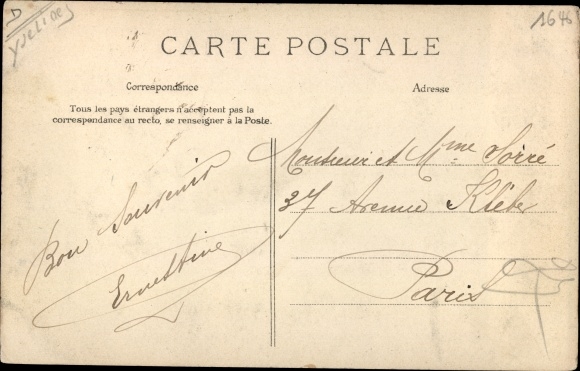 D
Yvelines
1646
CARTE POSTALE
Correspondance
Adresse
Tous les pays étrangers n'acceptent pas la
correspondance au recto, se renseigner à la Poste.
Bon Souvenir
Ernestine
Monsieur et Mme Sorré
37 Avenue Kléber
Paris